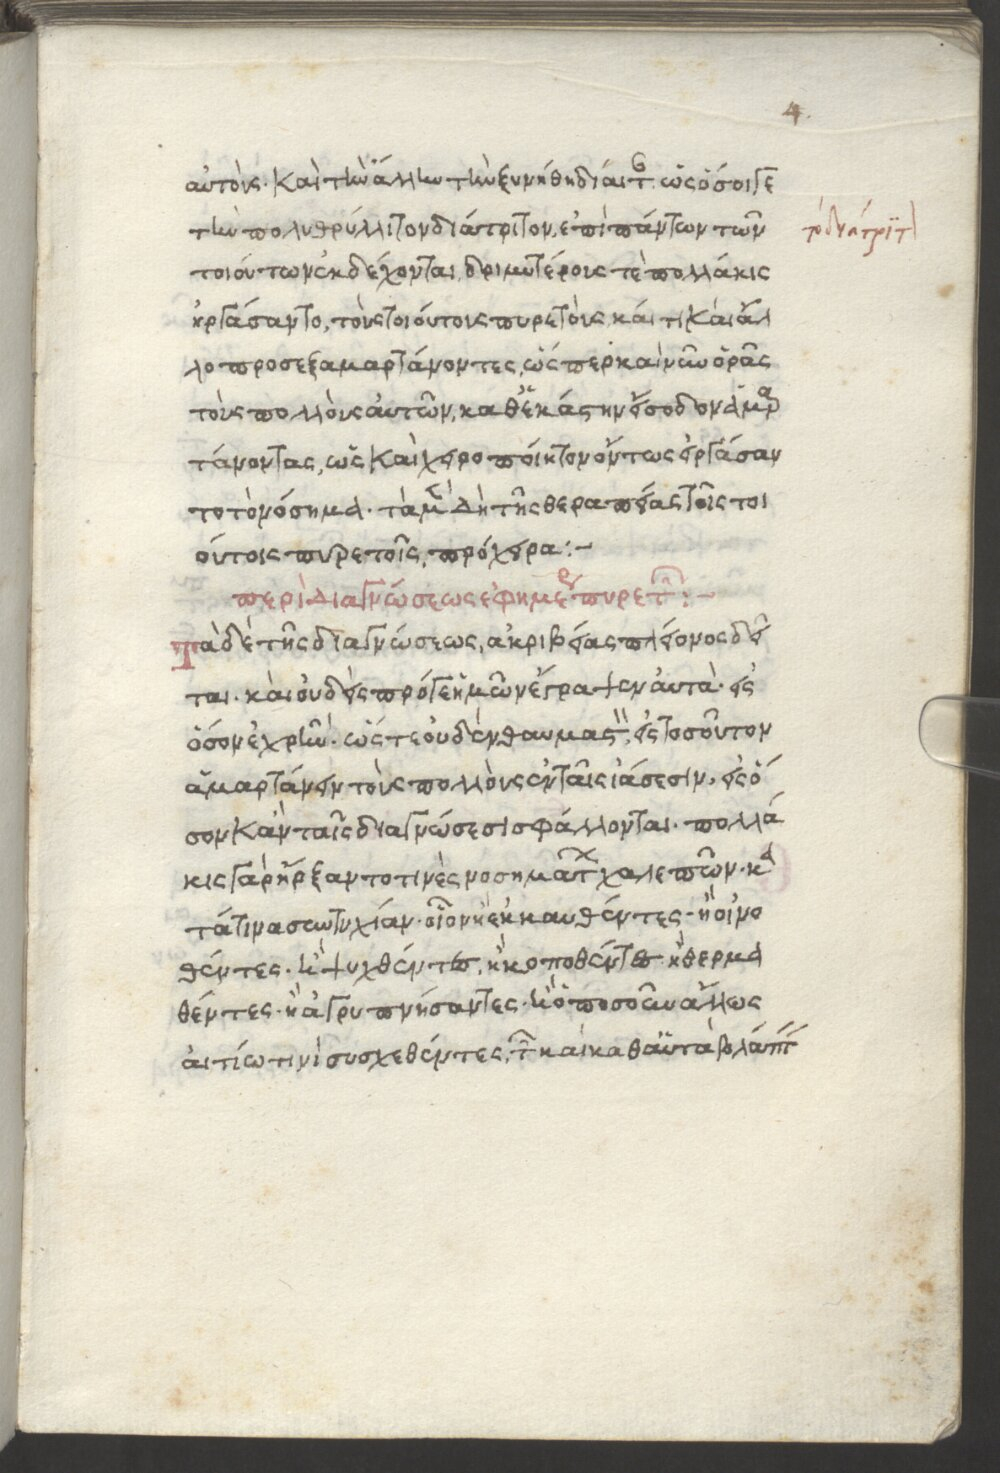 4.
αὐτοὺς· καὶ τὴν ἄλλην τὴν ξυνήθη δίαιτ· ὡς ὅσοι γε
τὴν πολυθρύλλητον διάτριτον, ἐπὶ πάντων τῶν
τοιούτων ἐκδέχονται, δριμυτέρους τὲ πολλάκις
εἰργάσαντο, τοὺς τοιούτους πυρετοὺς, κἀτι καὶ ἄλ
λο προσεξαμαρτάνοντες, ὥσπερ καὶ νῦν ὁρᾶς
τοὺς πολλοὺς αὐτῶν, καθ' ἑκάστην εἴσοδον ἁμαρ
τάνοντας, ὡς καὶ χειροποίητον ὄντως εἰργάσαν
το τὸ νόσημα· τὰ μὲν δὴ τῆς θεραπείας τοῖς τοι
ούτοις πυρετοῖς, πρόχειρα:-
περὶ διαγνώσεως ἐφημέρ πυρετ:-
Τὰ δὲ τῆς διαγνώσεως, ἀκριβείας πλείονος δεῖ
ται· καὶ οὐδεὶς πρόγε ἡμῶν ἔγραψεν αὐτὰ· εἰς
ὅσον ἐχρῆν· ὥστε οὐδὲν θαυμαστ, εἰς τοσοῦτον
ἁμαρτάνειν τοὺς πολλοὺς ἐν ταῖς ἰάσεσιν, εἰς ὅ
σον κἀν ταῖς διαγνώσεσι σφάλλονται· πολλά
κις γὰρ ἤρξαντο τινὲς νοσημάτ χαλεπῶν· κα
τά τινα συντυχίαν· οἷον ἢ ἐκκαυθέντες· ἢ οἰνο
θέντες· ἢ ψυχθέντες, ἢ κοποθέντες ἢ θερμα
θέντες· ἢ ἀγρυπνήσαντες· ἢ ὁποσοῦν ἄλλως
αἰτίω τινὶ συσχεθέντες, τ καὶ καθ' αὑτὰ βλάπτ